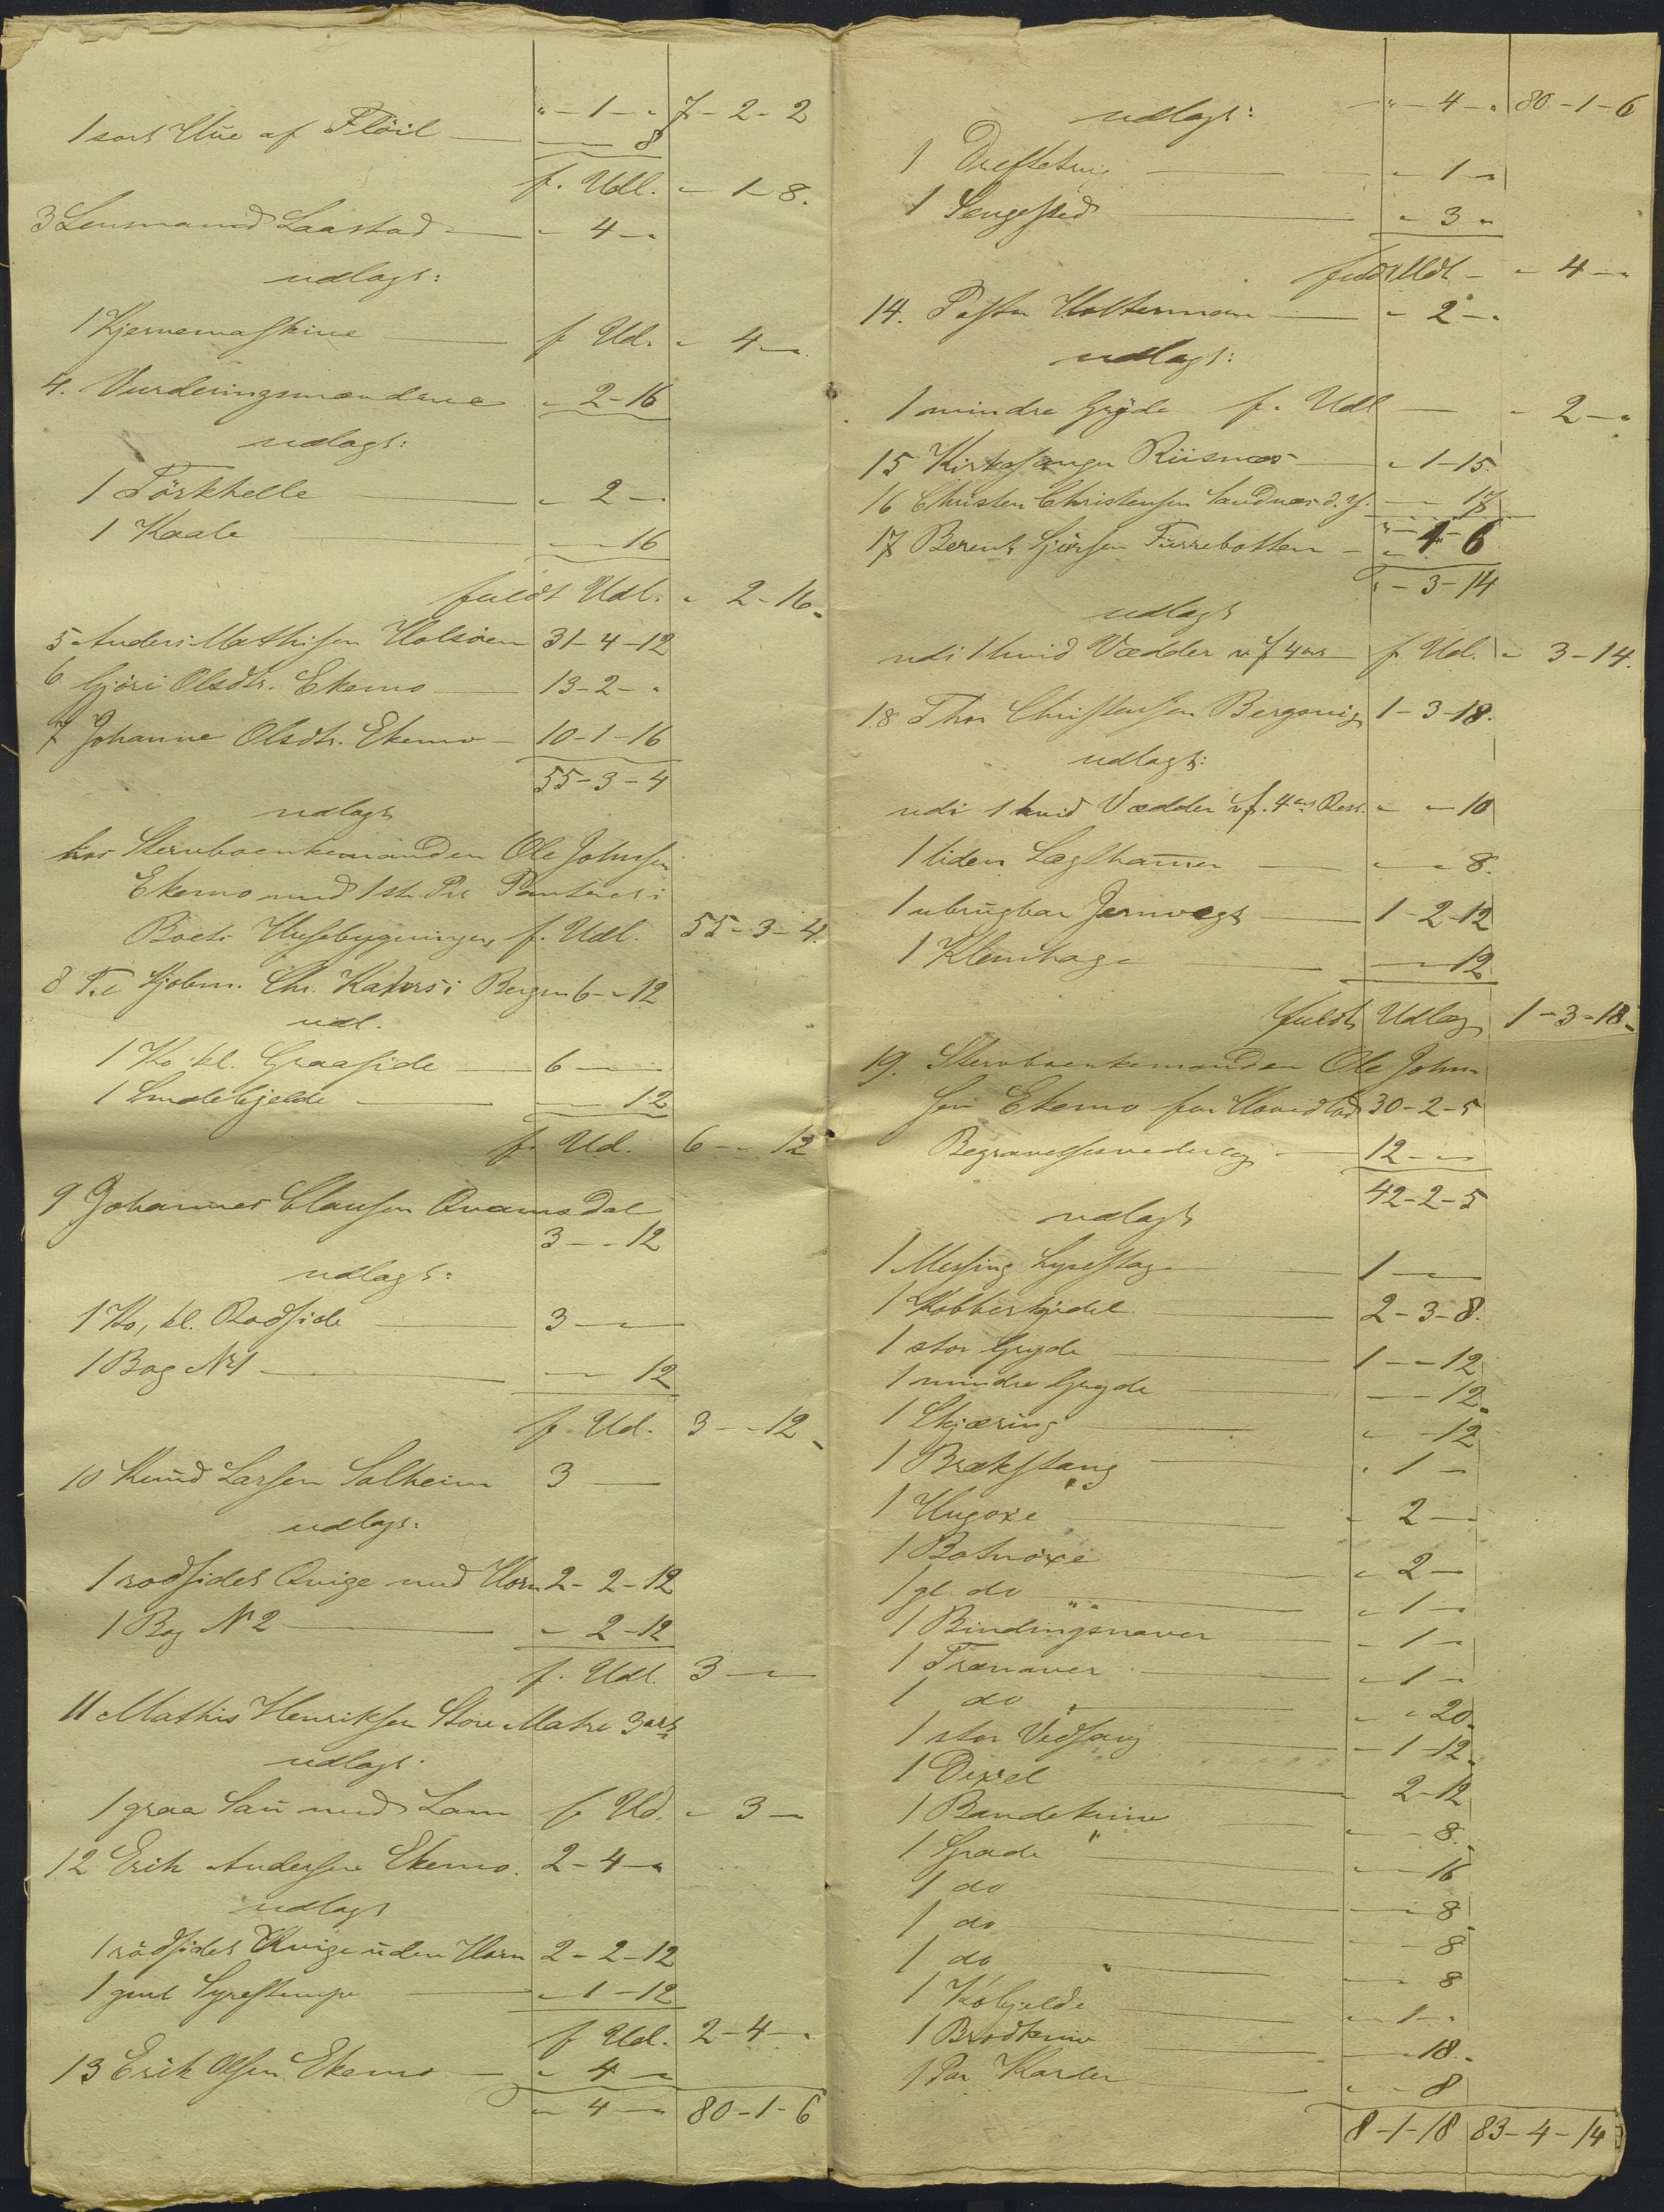 " - 1 - " 7 - 2 - 2
1 sort Hue af Flöil — " - " 8
f. Udl. " - 1 - 8.
3 Lensmand Laastad — " - 4 - "
udlagt:
1 Kjernemaskine — f Ud. " - 4 - "
4. Vurderingsmændene " - 2 - 16
udlagt:
1 Törkhelle — " - 2 - "
1 Kaabe — " - " - 16
fuldt Udl. " - 2 - 16
5 Anders Mathisen Holsöen 31 - 4 - 12
6 Gjöri Olsdtr. Ekemo — 13 - 2 - "
7 Johanne Olsdtr. Ekemo — 10 - 1 - 16
55 - 3 - 4
udlagt
hos Stervboenkemanden Ole Johnsen
Ekemo med 1ste Pr. Panteret i
Boets Husebygninger f. Udl. 55 - 3 - 4.
8 Kjøbm. Chr. i Bergen 6 - " - 12
udl.
1 Ko kl. Graaside — 6 - " - "
1 Smalebjelde — " - " - 12
f. Ud. 6 - " - 12
9 Johannes Clausen Qvamsdal
3 - " - 12
udlagt:
1 Ko, kl. Rodside — 3 - " - "
1 Bog Nr 1 — " - " - 12
f. Ud. 3 - " - 12
10 Knud Larsen Solheim 3 - "
udlagt:
1 rodsidet Qvige med Horn 2 - 2 - 12
1 Bog Nr 2 — " - 2 - 12
f. Udl. 3 - " - "
11 Mathis Henriksen Store Matre 3 ort
udlagt.
1 graa Sau med Lam f Ud. " - 3 - "
12 Erik Andersen Ekemo. 2 - 4 - "
udlagt
1 rödsidet Kvige uden Horn 2 - 2 - 12
1 Syrestampe — " - 1 - 12
f Ud. 2 - 4 - "
13 Erik Olsen Ekemo — " - 4 - "
" - 4 - " 80 - 1 - 6
udlagt: " - 4 - " 80 - 1 - 6
1 — " - 1 - "
1 Sengested — " - 3 - "
fuldt Udl. - " - 4 - "
14. Pastor Holterman — " - 2 - "
udlagt:
1 mindre Gryde f. Udl — " - 2 - "
15 Kirkesanger Riisnæs — " - 1 - 15
16 Christen Christensen Sandnæs d. Y. — " - " - 17
17 Berent Gjörsen Furrebotten - " - 1 - 6
" - 3 - 14
udlagt
udi 1 hvid Vædder f Ud. " - 3 - 14.
18 Thor Christensen Bergsvig 1 - 3 - 18.
udlagt:
udi 1 hvid Vædder Rest. " - " - 10
1 liden Lagthammer — " - " - 8.
1 ubrugbar Jernvægt — 1 - 2 - 12
1 Klemhage — " - " - 12
fuldt Udlæg 1 - 3 - 18
19. Stervboenkemanden Ole John-
sen Ekemo for Hovedlod 30 - 2 - 5
Begravelsesvederlag — 12 - " - "
42 - 2 - 5
udlagt
1 Messing Lysestage — 1 - " - "
1 Kobberkjedel — 2 - 3 - 8.
1 stor Gryde — 1 - " - 12
1 mindre Gryde — " - " - 12
1 Skjæring — " - " - 12
1 Brækstang — " - 1 - "
1 Hugøxe — " - 2 - "
1 Botnöxe — " - 2 - "
1 gl. do — " - 1 - "
1 Bindingsnaver — " - 1 - "
1 Trænaver — " - 1 - "
1 do — " - " - 20
1 stor Vedsaug — " - 1 - 12
1 Dixel — " - 2 - 12
1 Bandekniv — " - " - 8.
1 Grade — " - " - 16
1 do — " - " - 8
1 do — " - " - 8
1 do — " - " - 8
1 Kobjelde — " - 1 - "
1 Brödkniv — " - " - 18
1 Par Karder — " - " - 8
8 - 1 - 18 83 - 4 - 14